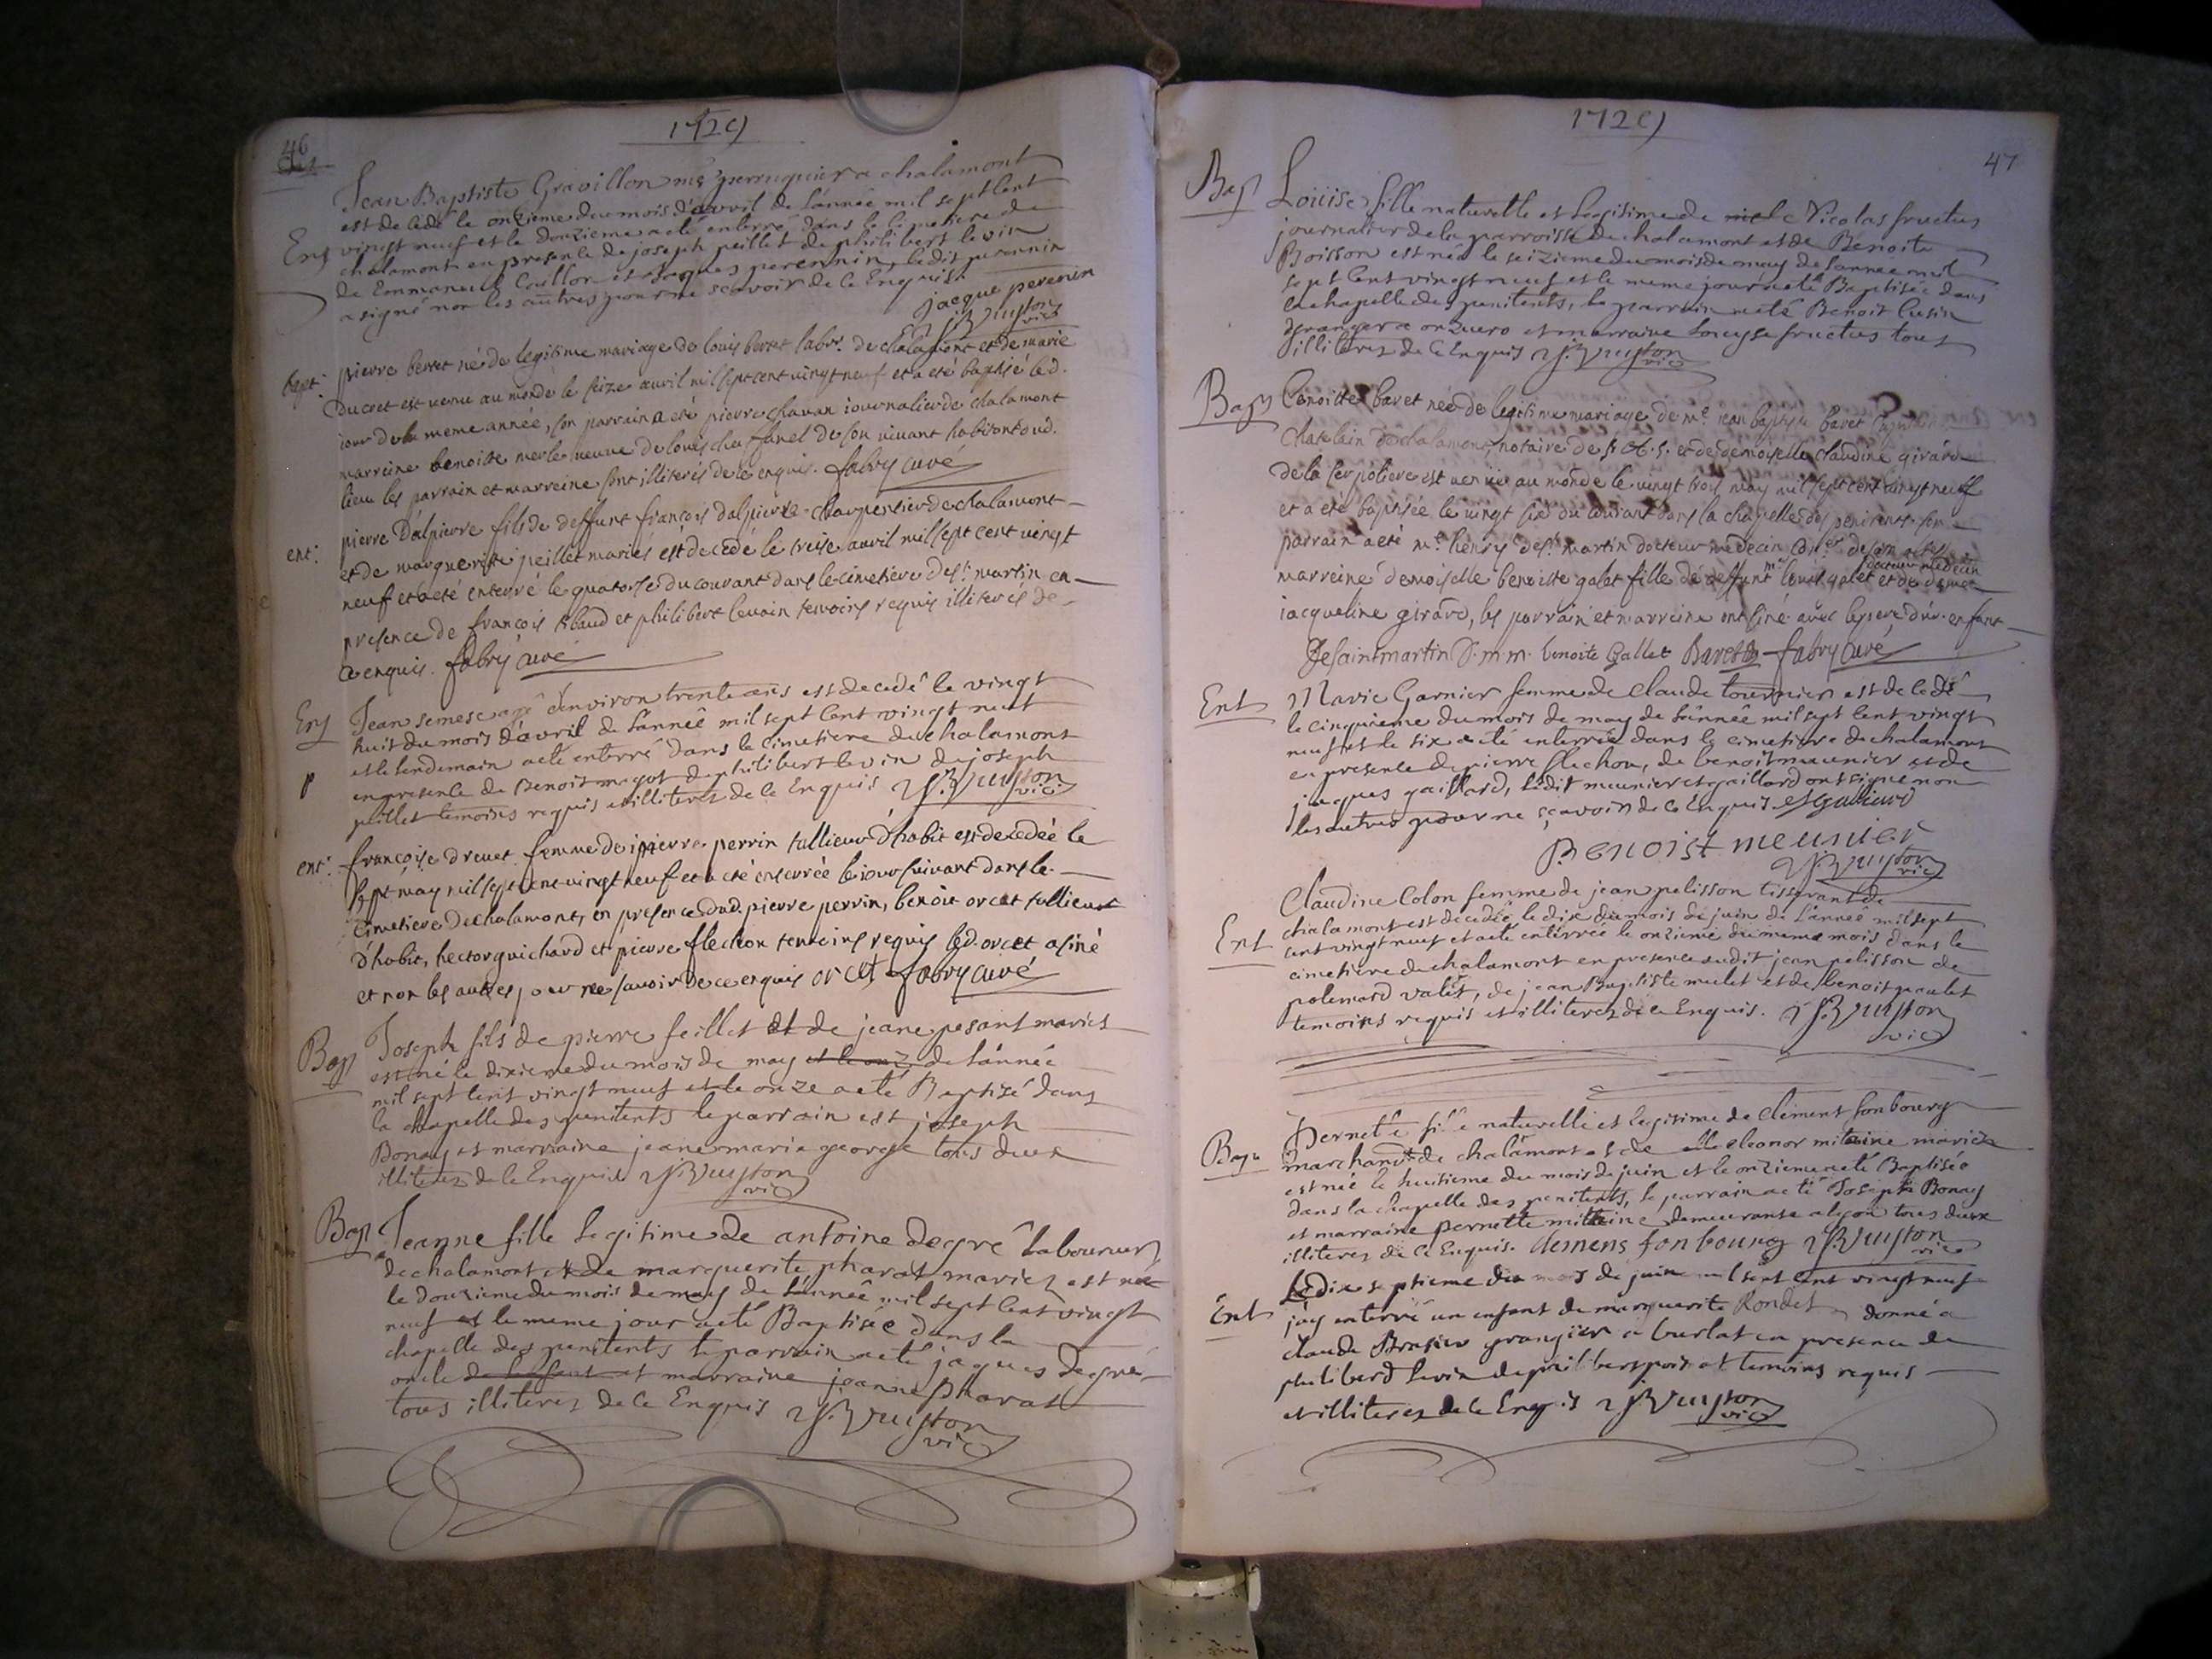 1729
46
Jean Baptiste Gravillon me perruquier a chalamont
est decedé le onzieme du mois d'avril de l'année mil sept cent
Ent vingt neuf et le douzieme a eté enterré dans le cimetiere de
chalamont en presence de joseph peillet de philibert levin
de Emmanuel Caillon et jaques perennin, ledit perennin
a signé non les autres pour ne scavoir de ce Enquis.
jacque perenin
vic
bapt: pierre berret né de legitime mariage de louis berret labr. de chalamont et de marie
ducret est venu au monde le seize avril mil sept cent vingt neuf et a eté baptisé led.
jour de la meme année, son parrain a eté pierre chavan iournalier de chalamont
marreine benoiste merle veuve de louis chanel de son vivant habitant aud.
lieu les parrain et marreine sont illiterés de ce enquis. fabry curé
ent: pierre Dalpierre fils de deffunt françois dalpierre charpentier de chalamont
et de marguerite peillet mariés est decedé le treise avril mil sept cent vingt
neuf et a eté enterré le quatorse du courant dans le cimetiere de st martin en
presence de françois ribaud et philibert levain temoins requis illiterés de
ce enquis. fabry curé
Ent Jean semese agé d'environ trente ans est decedé le vingt
huit du mois d'avril de l'année mil sept cent vingt neuf
et le lendemain a eté enterré dans le cimetiere de chalamont
p en presence de Benoit magot de philibert levin de joseph
peillet temoins requis et illiteres de ce Enquis
vic
ent: françoise drevet femme de pierre perrin tallieur d'habit est decedée le
sept may mil sept cent vingt neuf et a eté enterrée le iour suivant dans le
Cimetiere de chalamont, en presence dud. pierre perrin, benoit orcet tallieur
d'habit, hector guichard et pierre flechon temoins requis led. orcet a siné
et non les autres pour ne savoir de ce enquis orcet fabry curé
Bap Joseph fils de pierre feillet et de jeane pesant mariés
est né le dixieme du mois de may et le onz de l'année
mil sept cent vingt neuf et le onze a eté Baptisé dans
la chapelle des penitents le parrain est joseph
Bonay et marraine jeane marie george tous deux
illiteres de ce Enquis
vic
Bap Jeanne fille legitime de antoine degré laboureur
de chalamont et de marguerite pharat mariez est née
le douzieme du mois de may de l'année mil sept cent vingt
neuf et le meme jour a eté Baptisée dans la
chapelle des penitents le parrain a eté jaques degré
oncle de l'enfant et marraine jeanne pharat
tous illiteres de ce Enquis
vic
1729
47
Bap Loüise fille naturelle et legitime de Nicolas fructus
journalier de la parroisse de chalamont et de Benoite
Boisson est née le seizieme du mois de may de l'année mil
sept cent vingt neuf et le meme jour a eté Baptisée dans
la chapelle des penitents, le parrain a eté Benoit Cusin
granger a onzuero et marraine Loüyse fructus tous
illiteres de ce Enquis
vic
Bap Benoitte bavet née de legitime mariage de me jean baptiste bavet
Chatelain de chalamont, notaire de S. A. S. et de demoyselle claudine girard
de la serpoliere est venüe au monde le vingt trois may mil sept cent vingt neuf
et a eté baptisée le vingt six du courant dans la chapelle des penitents son
parrain a eté mr henry de st martin docteur medecin
marreine demoiselle benoitte galet fille de deffunt mr louis galet docteur medecin et de demlle
jacqueline girard, les parrain et marreine ont siné avec le pere de l'enfant
De saint martin D. m m. benoite Gallet Bavet fabry curé
Ent Marie Garnier femme de claude tournier est decedé
le cinquieme du mois de may de l'année mil sept cent vingt
neuf et le six a eté enterrée dans le cimetiere de chalamont
en presence de pierre flechon, de benoit meunier et de
jaques gaillard, ledit meunier et gaillard ont signé non
les autres pour ne sçavoir de ce Enquis
Benoist meunier
vic
Claudine Colon femme de jean pelisson tisserant de
chalamont est decedée le dix du mois de juin de l'année mil sept
Ent cent vingt neuf et a eté enterrée le onzieme du meme mois dans le
cimetiere de chalamont en presence dudit jean pelisson de
polemard valet, de jean Baptiste mulet et de benoit paulet
temoins requis et illiteres de ce Enquis.
vic
Pernette fille naturelle et legitime de Clement fonbourg
Bap marchand de chalamont et de eleonor mitaine mariez
est née le huitieme du mois de juin et le onzieme a eté Baptisée
dans la chapelle des penitents, le parrain a eté Joseph Bonay
et marraine pernette mittaine demeurante a lyon tous deux
illiteres de ce Enquis. clemens fonbourg
vic
Le dix septieme du mois de juin mil sept cent vingt neuf
Ent j'ay enterré un enfant de marguerite Rondet donné a
claude Brasier grangier a burlat en presence de
philiberd levin de philibert temoins requis
et illiteres de ce Enquis
vic